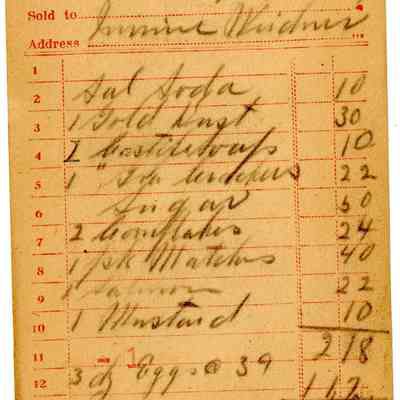 Sold to
Address
1
2 Sal Soda 10
3 1 Gold Dust 30
4 1 Castile soaps 10
5 1 " Crackers 22
6 Sugar 50
7 2 Cornflakes 24
8 1 pk Matches 40
9 1 Salmon 22
10 1 Mustard 10
11 218
12 3 dz Eggs @ 39